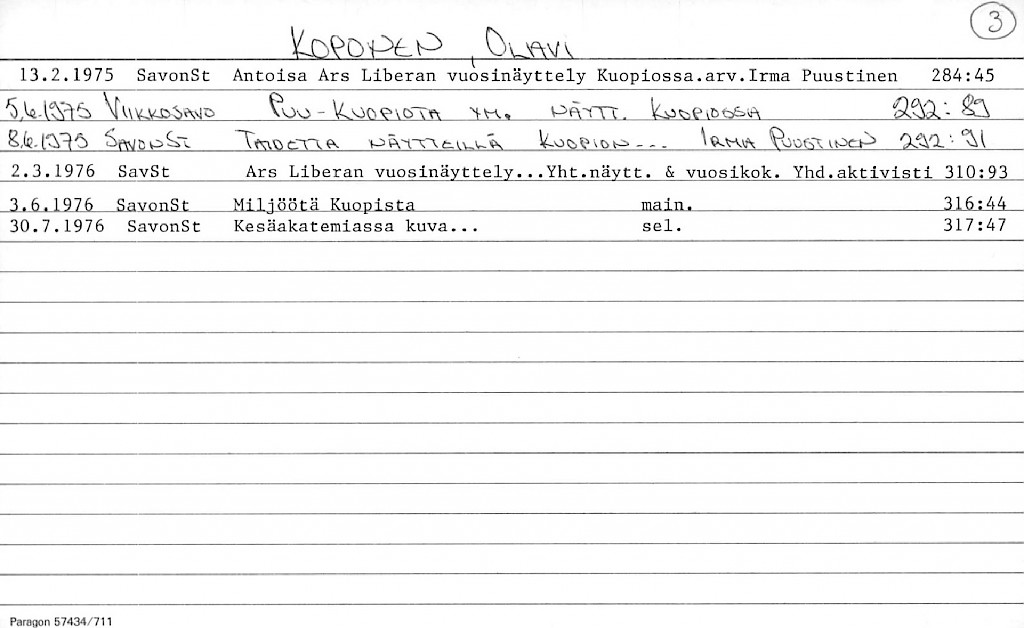 3
KOPONEN, OLAVI
13.2.1975 SavonSt Antoisa Ars Liberan vuosinäyttely Kuopiossa.arv.Irma Puustinen 284:45
5.6.1975 VIIKKOSAVO PUU-KUOPIOTA YM. NÄYTT. KUOPIOSSA 292:89
8.6.1975 SAVONST TAIDETTA NÄYTTEILLÄ KUOPION--- IRMA PUUSTINEN 292:91
2.3.1976 SavSt Ars Liberan vuosinäyttely...Yht.näytt. & vuosikok. Yhd.aktivisti 310:93
3.6.1976 SavonSt Miljöötä Kuopista main. 316:44
30.7.1976 SavonSt Kesäakatemiassa kuva... sel. 317:47
Paragon 57434/711